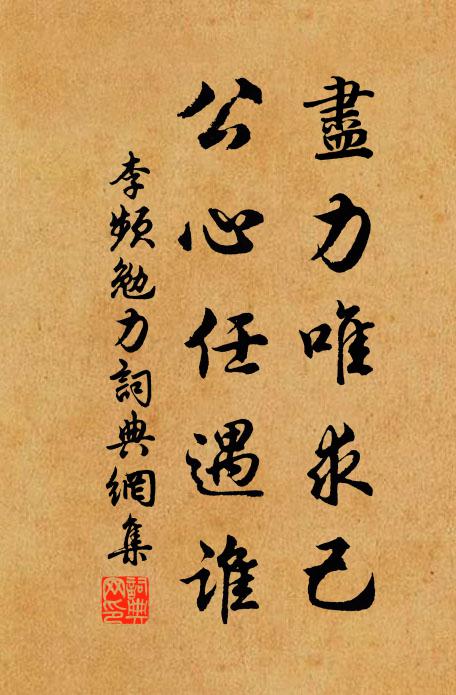 盡力唯求己
公心任遇誰
李頻勉力詞典網集
詞典网印